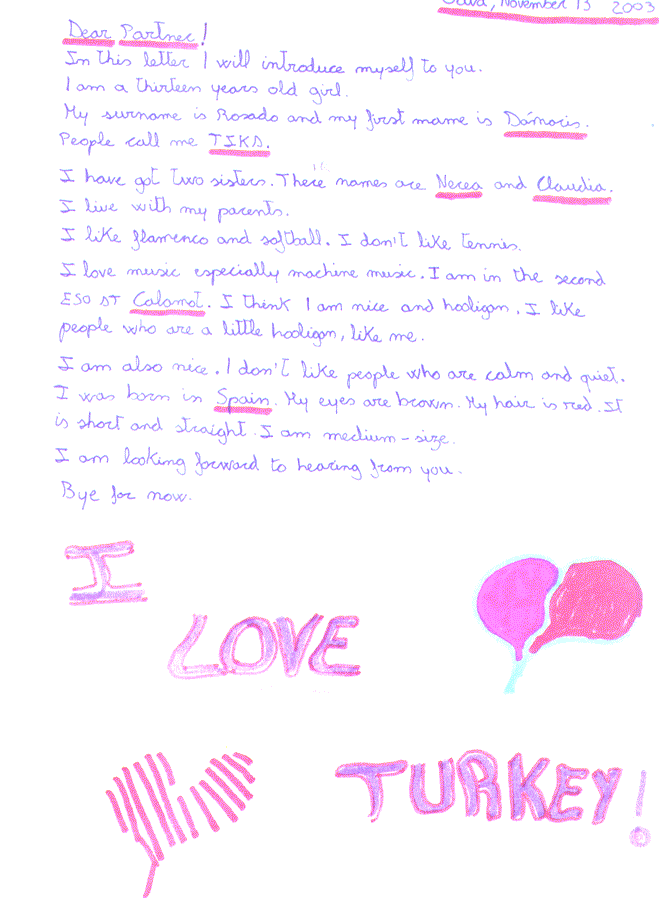 Gavà, November 13 2003
Dear Partner!
In this letter I will introduce myself to you.
I am a thirteen years old girl.
My surname is Rosado and my first mame is Dámaris.
People call me TIKA.
I have got two sisters. There names are Nerea and Claudia.
I live with my parents.
I like flamenco and softball. I don't like tennis.
I love music especially machine music. I am in the second
ESO AT Calamot. I think I am nice and hooligan. I like
people who are a little hooligan, like me.
I am also nice. I don't like people who are calm and quiet.
I was born in Spain. My eyes are brown. My hair is red. It
is short and straight. I am medium-size.
I am looking forward to hearing from you.
Bye for now.
I
LOVE
TURKEY!